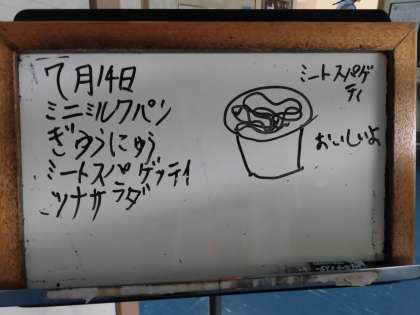 7月14日
ミニミルクパン
ぎゅうにゅう
ミートスパゲッティ
ツナサラダ
ミートスパゲ
ティ
おいしいよ